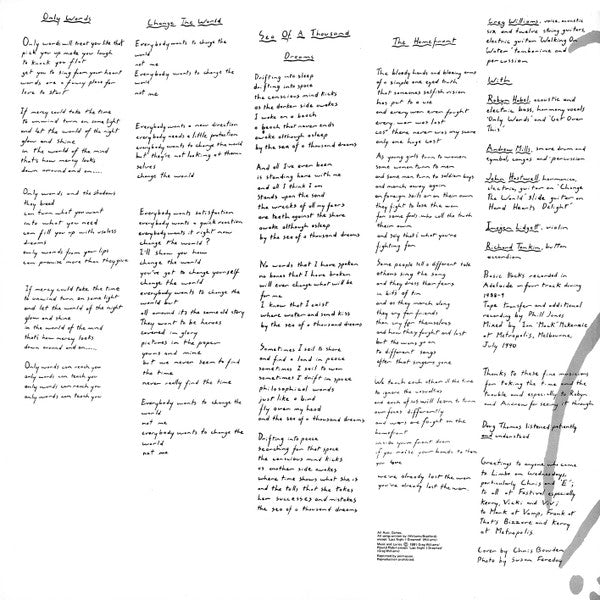 Only Words
Only words will treat you like that
pick you up make you laugh
to knock you flat
get you to sing from your heart
words are a funny place for
love to start
If mercy could take the time
to unwind turn on some light
and let the world of the night
glow and shine
in the world of the mind
that's how mercy looks
down around and on.....
Only words and the shadows
they breed
can turn what you want
into what you need
can fill you up with useless
dreams
only words from your lips
can promise more than they give
If mercy could take the time
to unwind turn on some light
and let the world of the night
glow and shine
in the world of the mind
that's how mercy looks
down around and on.....
Only words can reach you
only words can teach you
only words can reach you
only words can teach you
Change The World
Everybody wants to change the
world
not me
Everybody wants to change the
world
not me
Everybody wants a new direction
everybody needs a little protection
everybody wants to change the world
but they're not looking at them-
selves
change the world
Everybody wants satisfaction
everybody wants a quick reaction
everybody wants it right now
change the world?
I'll show you how
change the world
you've got to change yourself
change the world
everybody wants to change the
world but
all around it's the same old story
They want to be heroes
covered in glory
pictures in the paper
yours and mine
but we never seem to find
the time
never really find the time
Everybody wants to change the
world
not me
everybody wants to change the
world
not me
Sea Of A Thousand
Dreams
Drifting into sleep
drifting into space
the conscious mind kicks
as the darker side awakes
I wake on a beach
a beach that never ends
awake although asleep
by the sea of a thousand dreams
And all I've ever been
is standing here with me
and all I think I am
stands upon the sand
the wrecks of all my fears
are teeth against the shore
awake although asleep
by the sea of a thousand dreams
No words that I have spoken
no bones that I have broken
will ever change what will be
for me
I know that I exist
where water and sand kiss
by the sea of a thousand dreams
Sometimes I sail to shore
and find a land in peace
sometimes I sail to war
sometimes I drift in space
philosophical words
just like a bird
fly over my head
and the sea of a thousand dreams
Drifting into peace
searching for that space
the conscious mind kicks
as another side awakes
where time shows what she is
and the tolls that she takes
her successes and mistakes
the sea of a thousand dreams
The Homefront
The bloody hands and bleeding arms
of a simple one eyed truth
that someones selfish vision
has put to a use
and every war ever fought
every war was lost
cost there never was any more
only one huge cost
As young girls turn to women
some women turn to men
and some men turn to soldier boys
and march away again
on foreign soils or on their own
they fight to lose the war
for some fools who sell the truth
their own
and say that's what you're
fighting for
Some people tell a different tale
others sing the song
and they dress their fears
in bits of tin
and as they march along
they cry for friends
than cry for themselves
and how they fought and lost
but the wars go on
to different songs
after that singers gone
We teach each other all the time
to ignore the casualties
and each of us will learn to turn
our faces differently
and wars are fought on the
homefront
inside your front door
if you raise your hands to those
you love
we've already lost the war
you've already lost the war
Greg Williams, voice, acoustic
six and twelve string guitars,
electric guitar 'Walking On
Water' tambourine and
percussion
With
Robyn Habel, acoustic and
electric bass, harmony vocals
'Only Words' and 'Get Over
This'
Andrew Mills, snare drum and
cymbal, congas and percussion
electric guitar on 'Change
The World' slide guitar on
Hand Hearts Delight'
Imogen Lidgett, violin
Richard Tonkin, button
accordian
Basic tracks recorded in
Adelaide on four track during
1988-9
Tape transfer and additional
recording by Phill Jones
Mixed by Ian 'Mack' McKenzie
at Metropolis, Melbourne,
July 1990
Thanks to these fine musicians
for taking the time and the
trouble and especially to Robyn
and Andrew for seeing it through
Doug Thomas listened patiently
and understood
Greetings to anyone who came
to Limbo on Wednesdays,
particularly Chris and "E";
to all at Festival especially
Kerry, Vicki and Vivi
to Mark at Vamp, Frank at
That's Bizzare and Kerry
at Metropolis.
Cover by Chris Bowden
Photo by Susan Fereday